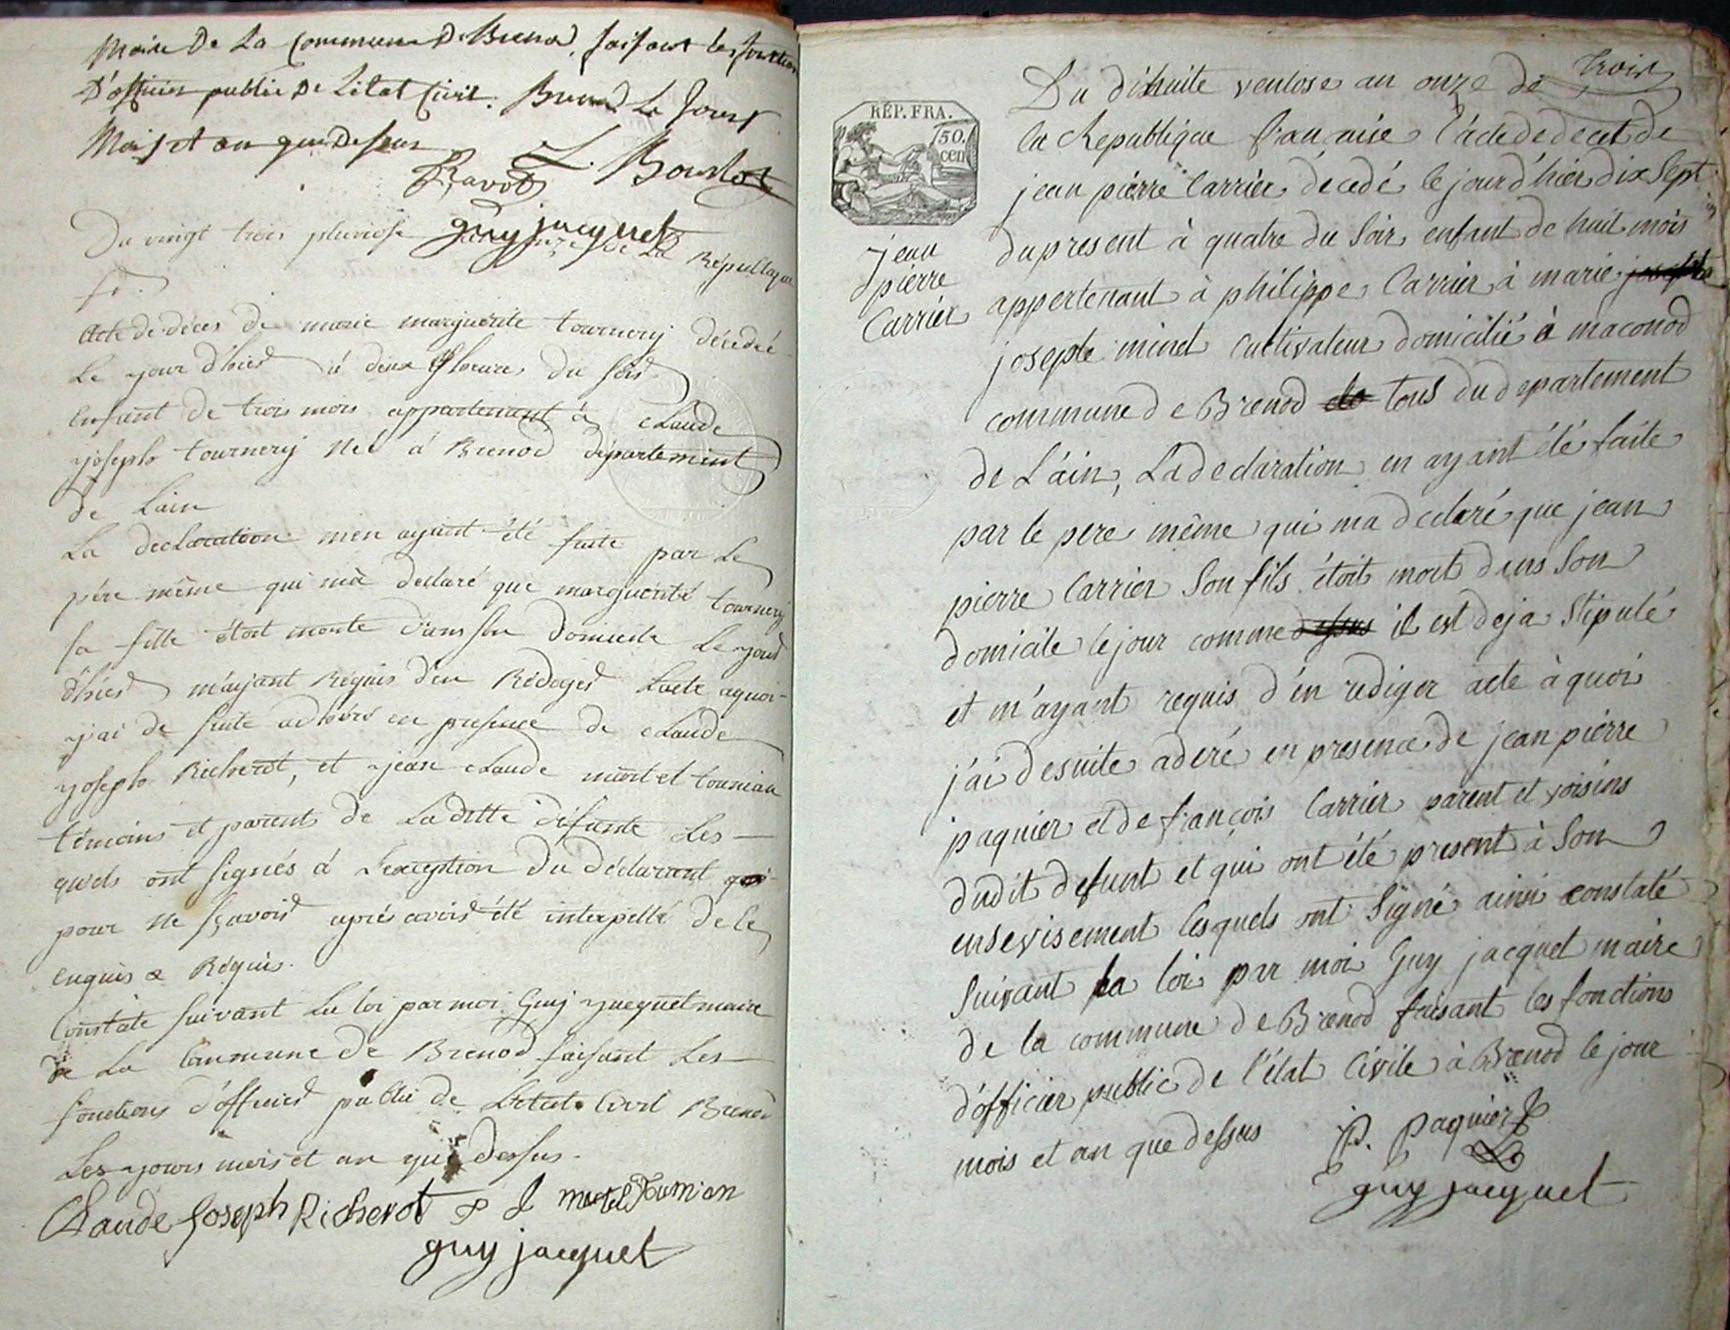 Maire De La Commune De Brenod, faisant les fonctions
D'officier public De L'état Civil. Brenod Le Jour
Mois et an que Dessus
Ravot L. Bourlot
guy jacquet
Du vingt trois pluviose an onze De La Républiq
fr.
Acte de déces de marie marguerite tournery décedée
Le your d'hier à deux heure du soir
enfant de trois mois appartenant à Claude
yoseph tournery Né à Brenod département
de Lain
La declaration m'en ayant été faite par Le
pére même qui m'a declaré que marguerite tournery
sa fille étoit morte dans son domicile Le your
d'hier m'ayant Réquis d'en Rédiger Lacte aquoi
yai de suite adhéré en presence de Claude
yoseph Richerot, et yean Claude martel tournian
témoins et parents de La ditte défunte Les
quels ont signés à L'exception du déclarant qui
pour Ne sçavoir aprés avoir été interpellé de le
enquis & Réquis.
Constaté suivant La loi par moi Guy yacquet maire
de La Commune de Brenod faisant Les
fonctions d'officier public de L'état Civil Brenod
Les yours mois et an que dessus.
Claude Joseph Richerot J martel Tournian
guy jacquet
trois
RÉP. FRA.
50.
cen
jean
pierre
Carrier
Du dixhuite ventose an onze de
la Republique francaise l'acte de decet de
jean pierre Carrier décedé le jour d'hier dix Sept
du present à quatre du Soir enfant de huit mois
appertenant à philippe Carrier à marie josephte
josephte minet Cultivateur domicilié à maconod
commune de Brenod de tous du departement
de L'áin, La declaration en ayant été faite
par le pere même qui ma declaré que jean
pierre Carrier Son fils étoit mort dans Son
domicile le jour comme dessus il est deja Stipulé
et m'ayant requis d'en rediger acte à quoi
j'ai desuite aderé en presence de jean pierre
paquier et de françois Carrier parent et voisins
dudit defunt et qui ont été present à Son
ensevisement lesquels ont Signé ainsi constaté
Suivant la loi par moi Guy jacquet maire
de la commune de Brenod faisant les fonctions
d'officier public de l'état Civile à Brenod le jour
mois et an que dessus P. Paquier
guy jacquet